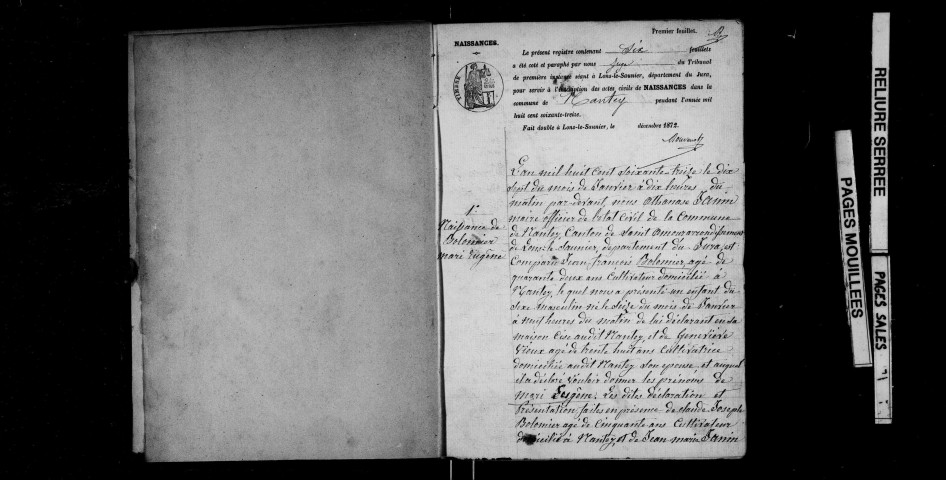 Premier feuillet.
NAISSANCES.
Le présent registre contenant Six feuillets
a été coté et paraphé par nous Juge du Tribunal
de première instance séant à Lons-le-Saunier, département du Jura,
pour servir à l'inscription des actes civils de NAISSANCES dans la
commune de Nantey pendant l'année mil
huit cent soixante-treize.
Fait double à Lons-le-Saunier, le décembre 1872.
TIMBRE
1er
Naissance de
Bolomier
mari Eugène
L'an mil huit cent soixante-treize le dix
sept du mois de Janvier à dix heures du
matin par devant, nous Athanase Janin
maire officier de l'état Civil de la Commune
de Nantey Canton de Saint Amour arrondissement
de Lons-le-Saunier, département du Jura, est
Comparu Jean-francois Bolomier, agé de
quarante deux ans Cultivateur domicilié à
Nantey, le quel nous a présenté un enfant du
Sexe masculin né le Seize du mois de Janvier
à neuf heures du matin de lui déclarant en sa
maison Cise audit Nantey, et de Geneviève
Vioux agé de trente huit ans Cultivatrice
domiciliée audit Nantey son épouse et auquel
il a déclaré Vouloir donner les prénoms de
mari Eugène. Les dites déclaration et
Présentation faites en présence de claude Joseph
Bolomier agé de Cinquante ans Cultivateur
domicilié à Nantey, et de Jean marie Janin
RELIURE SERREE
PAGES MOUILLEES
PAGES SALES